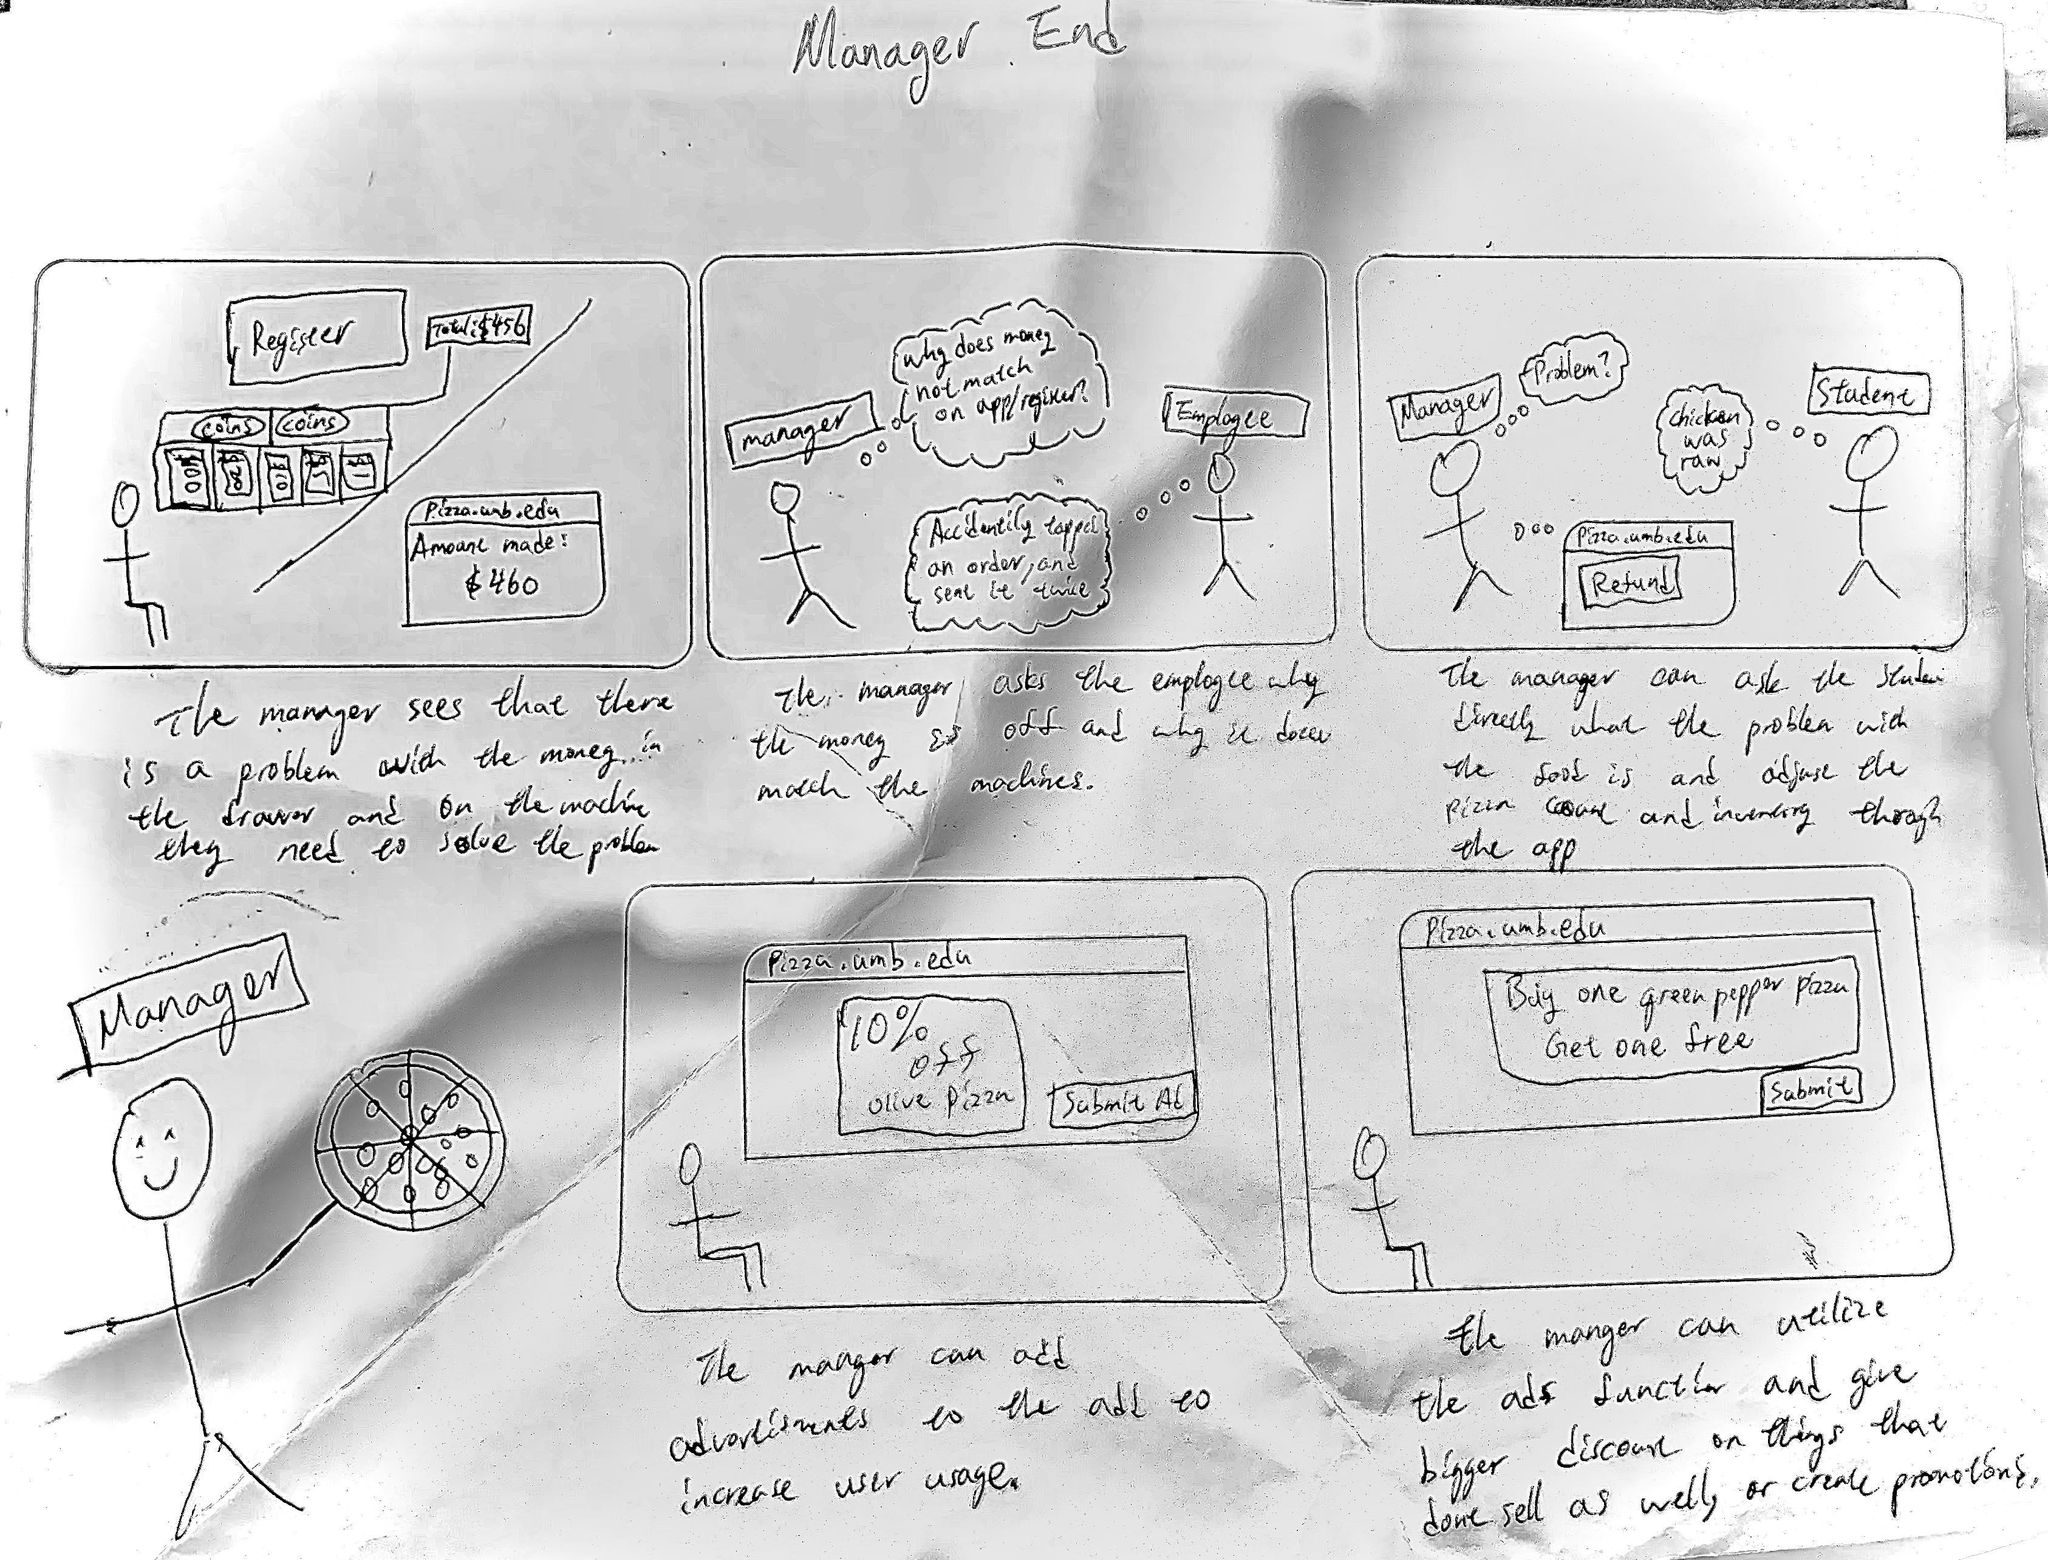 Manager End
Register
Total: $456
coins coins
Pizza.umb.edu
Amount made:
$460
The manager sees that there
is a problem with the money in
the drawer and on the machine
they need to solve the problem
manager
why does money
not match
on app/register?
Employee
Accidentily tapped
an order, and
sent it twice
The manager asks the employee why
the money is off and why it doesn
match the machines.
Manager
Problem?
Student
chicken
was
raw
Pizza.umb.edu
Refund
The manager can ask the studen
directly what the problem with
the food is and adjust the
pizza count and inventory through
the app
Manager
Pizza.umb.edu
10%
off
olive pizza
Submit Ad
The manager can add
advertisments to the add to
increase user usage.
Pizza.umb.edu
Buy one green pepper pizza
Get one free
Submit
The manger can utilize
the ads function and give
bigger discount on things that
dont sell as well, or create promotions.